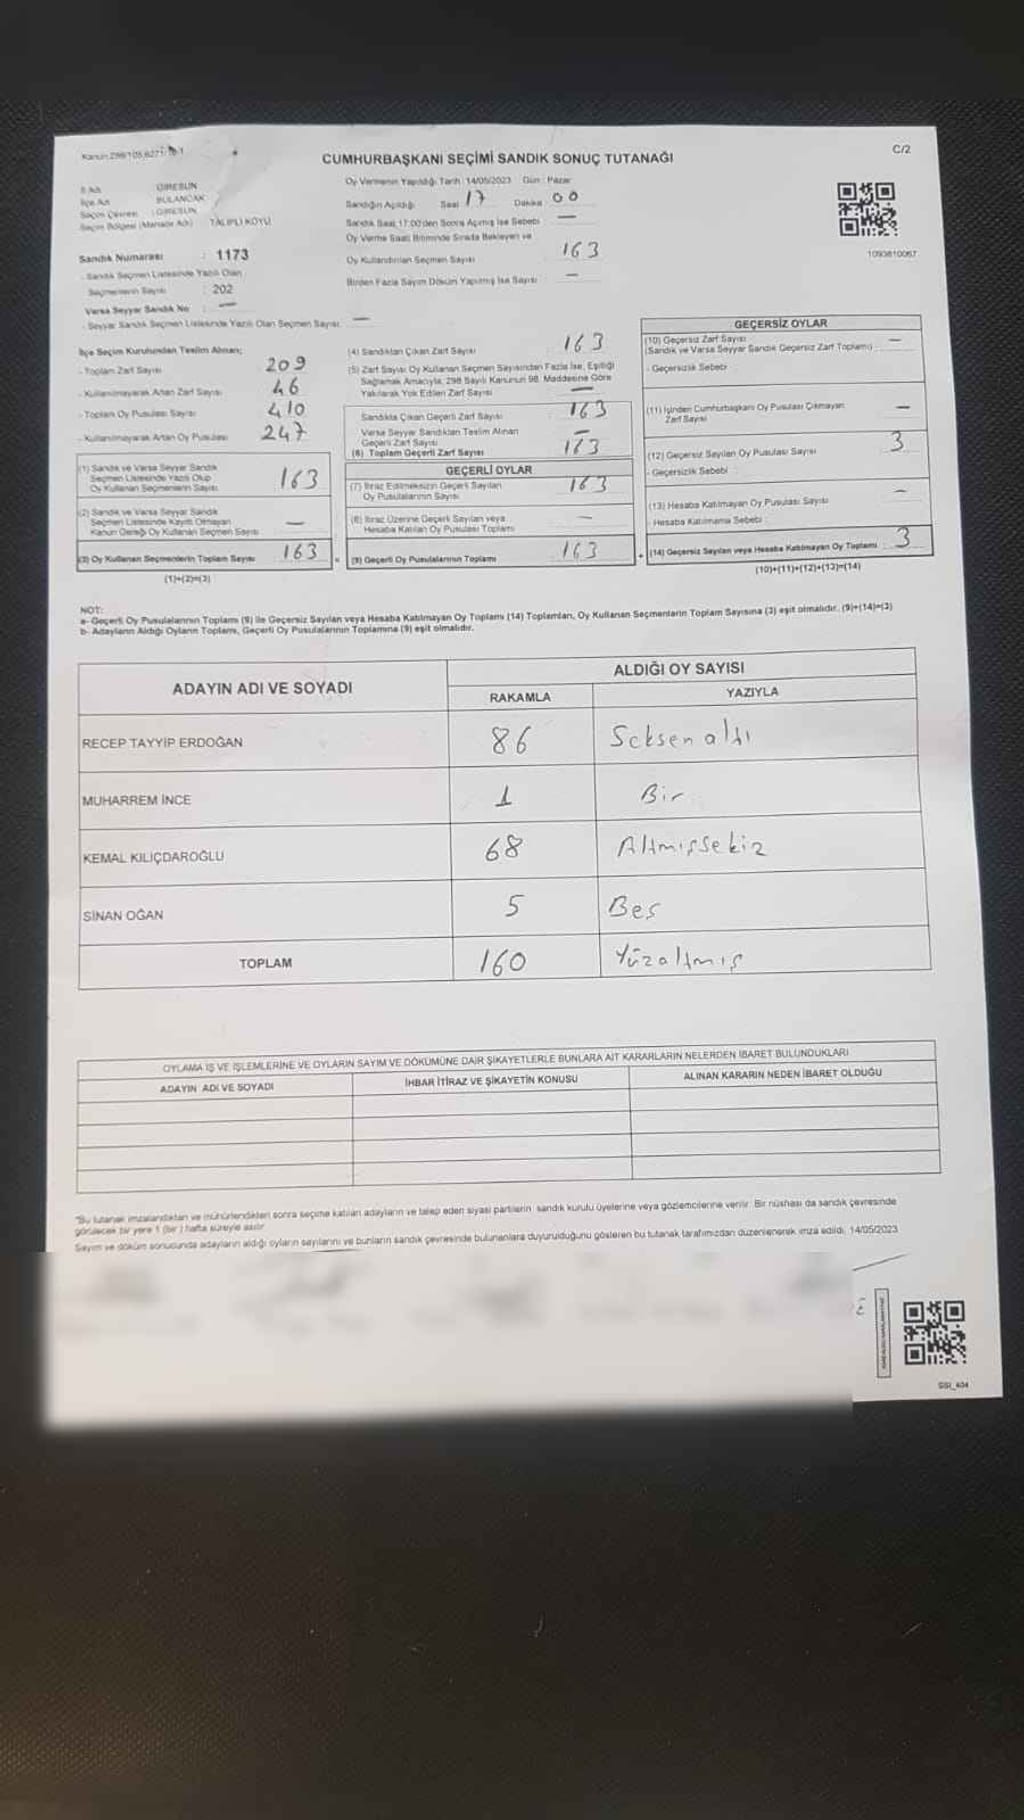 Kanun 298/105,6271/
C/2
CUMHURBAŞKANI SEÇİMİ SANDIK SONUÇ TUTANAĞI
İl Adı : GİRESUN
İlçe Adı : BULANCAK
Seçim Çevresi : GİRESUN
Seçim Bölgesi (Mahalle Adı) TALİPLİ KÖYÜ
Oy Vermenin Yapıldığı Tarih :14/05/2023 Gün : Pazar
Sandığın Açıldığı Saat 17 Dakika 00
Sandık Saat 17:00'den Sonra Açılmış İse Sebebi —
Oy Verme Saati Bitiminde Sırada Bekleyen ve
Oy Kullandırılan Seçmen Sayısı 163
Birden Fazla Sayım Döküm Yapılmış İse Sayısı —
1093810067
Sandık Numarası : 1173
- Sandık Seçmen Listesinde Yazılı Olan
Seçmenlerin Sayısı : 202
Varsa Seyyar Sandık No : —
- Seyyar Sandık Seçmen Listesinde Yazılı Olan Seçmen Sayısı: —
İlçe Seçim Kurulundan Teslim Alınan;
- Toplam Zarf Sayısı 209
- Kullanılmayarak Artan Zarf Sayısı 46
- Toplam Oy Pusulası Sayısı 410
- Kullanılmayarak Artan Oy Pusulası 247
(1) Sandık ve Varsa Seyyar Sandık
Seçmen Listesinde Yazılı Olup
Oy Kullanan Seçmenlerin Sayısı 163
(2) Sandık ve Varsa Seyyar Sandık
Seçmen Listesinde Kayıtlı Olmayan
Kanun Gereği Oy Kullanan Seçmen Sayısı —
(3) Oy Kullanan Seçmenlerin Toplam Sayısı 163
(1)+(2)=(3)
(4) Sandıktan Çıkan Zarf Sayısı 163
(5) Zarf Sayısı Oy Kullanan Seçmen Sayısından Fazla İse, Eşitliği
Sağlamak Amacıyla, 298 Sayılı Kanunun 98. Maddesine Göre
Yakılarak Yok Edilen Zarf Sayısı —
Sandıkta Çıkan Geçerli Zarf Sayısı 163
Varsa Seyyar Sandıktan Teslim Alınan
Geçerli Zarf Sayısı —
(6) Toplam Geçerli Zarf Sayısı 163
GEÇERLİ OYLAR
(7) İtiraz Edilmeksizin Geçerli Sayılan
Oy Pusulalarının Sayısı 163
(8) İtiraz Üzerine Geçerli Sayılan veya
Hesaba Katılan Oy Pusulası Toplamı —
= (9) Geçerli Oy Pusulalarının Toplamı 163
GEÇERSİZ OYLAR
(10) Geçersiz Zarf Sayısı
(Sandık ve Varsa Seyyar Sandık Geçersiz Zarf Toplamı) —
- Geçersizlik Sebebi
(11) İçinden Cumhurbaşkanı Oy Pusulası Çıkmayan
Zarf Sayısı —
(12) Geçersiz Sayılan Oy Pusulası Sayısı 3
- Geçersizlik Sebebi :
(13) Hesaba Katılmayan Oy Pusulası Sayısı —
- Hesaba Katılmama Sebebi :
+ (14) Geçersiz Sayılan veya Hesaba Katılmayan Oy Toplamı : 3
(10)+(11)+(12)+(13)=(14)
NOT:
a- Geçerli Oy Pusulalarının Toplamı (9) ile Geçersiz Sayılan veya Hesaba Katılmayan Oy Toplamı (14) Toplamları, Oy Kullanan Seçmenlerin Toplam Sayısına (3) eşit olmalıdır. (9)+(14)=(3)
b- Adayların Aldığı Oyların Toplamı, Geçerli Oy Pusulalarının Toplamına (9) eşit olmalıdır.
ADAYIN ADI VE SOYADI
ALDIĞI OY SAYISI
RAKAMLA YAZIYLA
RECEP TAYYİP ERDOĞAN 86 Seksen altı
MUHARREM İNCE 1 Bir
KEMAL KILIÇDAROĞLU 68 Altmışsekiz
SİNAN OĞAN 5 Beş
TOPLAM 160 Yüzaltmış
OYLAMA İŞ VE İŞLEMLERİNE VE OYLARIN SAYIM VE DÖKÜMÜNE DAİR ŞİKAYETLERLE BUNLARA AİT KARARLARIN NELERDEN İBARET BULUNDUKLARI
ADAYIN ADI VE SOYADI İHBAR İTİRAZ VE ŞİKAYETİN KONUSU ALINAN KARARIN NEDEN İBARET OLDUĞU
"Bu tutanak imzalandıktan ve mühürlendikten sonra seçime katılan adayların ve talep eden siyasi partilerin sandık kurulu üyelerine veya gözlemcilerine verilir. Bir nüshası da sandık çevresinde
görülecek bir yere 1 (bir ) hafta süreyle asılır
Sayım ve döküm sonucunda adayların aldığı oyların sayılarını ve bunların sandık çevresinde bulunanlara duyurulduğunu gösteren bu tutanak tarafımızdan düzenlenerek imza edildi. 14/05/2023
SSI_404